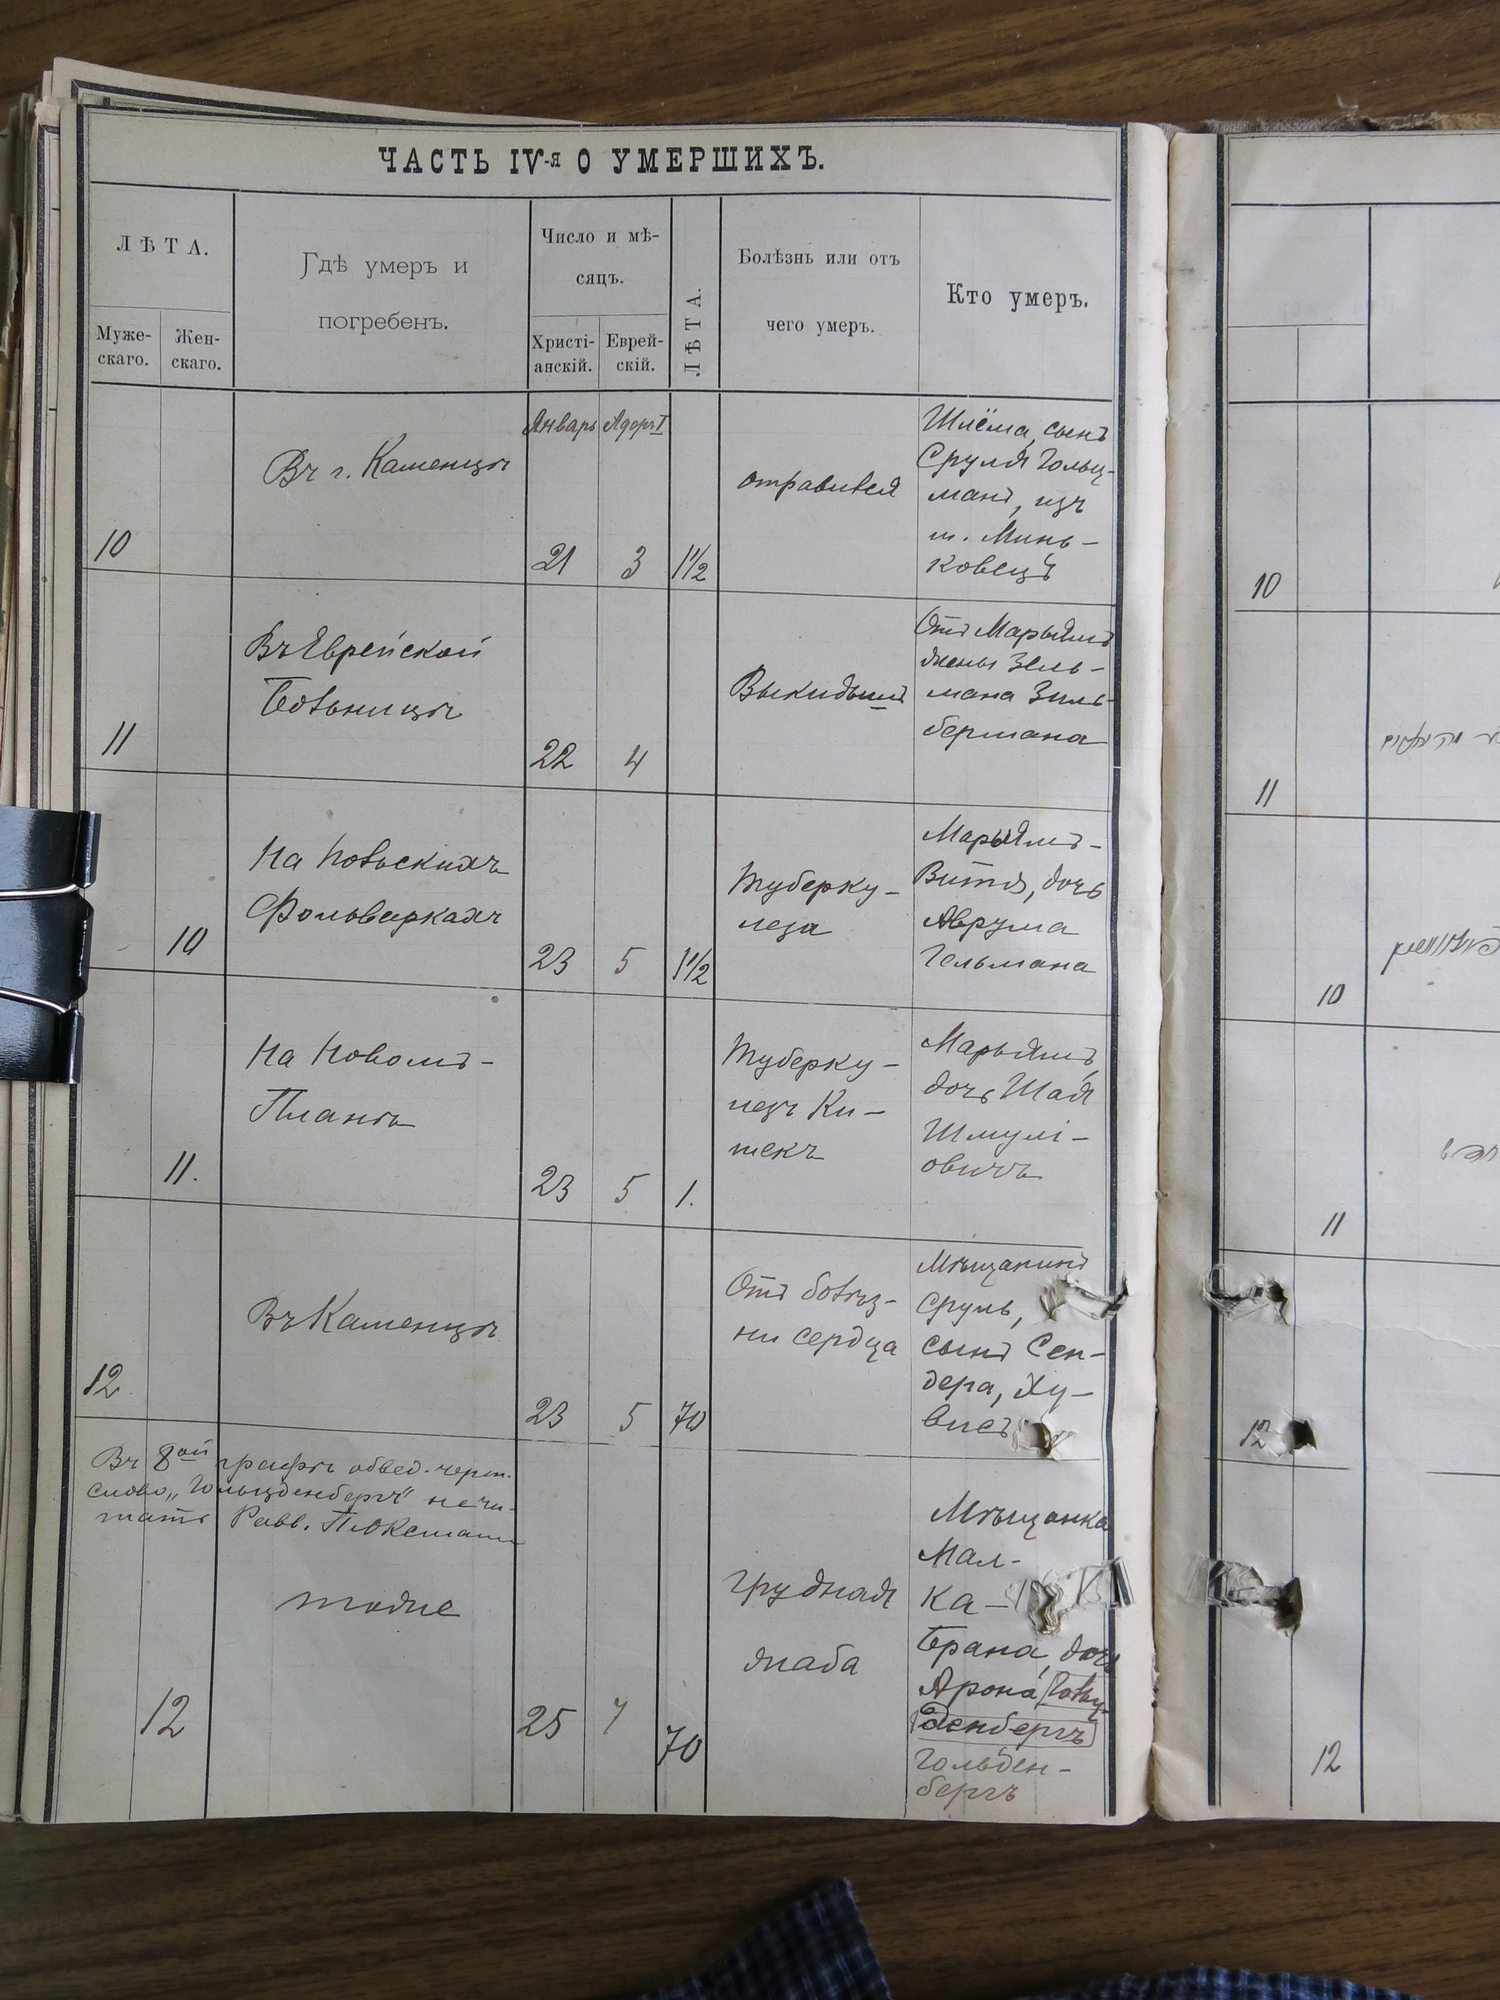 ЧАСТЬ IV-я О УМЕРШИХЪ.
ЛѢТА.
Муже-
скаго.
Жен-
скаго.
Гдѣ умеръ и
погребенъ.
Число и мѣ-
сяцъ.
Христі-
анскій.
Еврей-
скій.
ЛѢТА.
Болѣзнь или отъ
чего умеръ.
Кто умеръ.
10
Въ г. Каменцѣ
Январь
21
Адоръ I
3
1 1/2
отравился
Шлёма, сынъ
Сруля Гольц-
манъ, изъ
м. Минь-
ковецъ
11
Въ Еврейской
Больницѣ
22
4
Выкидышъ
Отъ Марьямъ
жены Зель-
мана Зиль-
бермана
10
На Польскихъ
Фольваркахъ
23
5
1 1/2
Туберку-
леза
Марьямъ-
Витля, дочь
Аврума
Гельмана
11.
На Новомъ-
Планѣ
23
5
1.
Туберку-
лезъ Ки-
шекъ
Марьямъ,
дочь Шая
Шмулі-
овичъ
12.
Въ Каменцѣ
23
5
70
Отъ болѣз-
ни сердца
Мѣщанинъ
Сруль,
сынъ Сен-
дера, Ху-
висъ
Въ 8ой графѣ обвед. черт.
слово „Гольцденбергъ" не чи-
тать Равв.
12
тоже
25
7
70
Грудная
жаба
Мѣщанка
Мал-
ка-
Брана, дочь
Арона Гольц-
денбергъ
Гольден-
бергъ
10
11
10
11
12
12